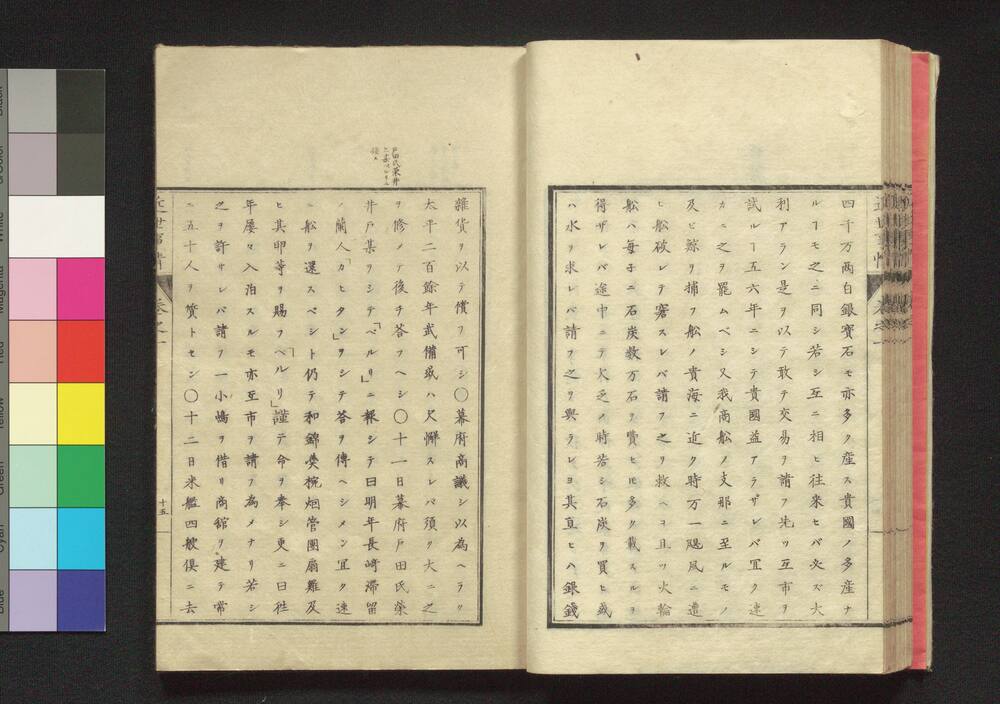 四千万両白銀寳石モ亦多ク産ス貴國ノ多産ナ
ルヿモ之ニ同シ若シ互ニ相ヒ往来セバ必ズ大
利アラン是ヲ以テ敢テ交易ヲ請フ先ツ互市ヲ
試ルヿ五六年ニシテ貴國益アラザレバ宜ク速
カニ之ヲ罷ムベシ又我商船ノ支那ニ至ルモノ
及ビ鯨ヲ捕フ船ノ貴海ニ近ク時万一颶風ニ遭
ヒ船破レテ窘スレバ請フ之ヲ救ヘヨ且ツ火輪
船ハ毎子ニ石炭数万石ヲ費ヒ多ク載スルヲ
得ザレバ途中ニテ欠乏ノ時若シ石炭ヲ買ヒ或
ハ水ヲ求レバ請フ之ヲ與ラレヨ其直ヒハ銀錢
近世事情
雜貨ヲ以テ償フ可シ〇幕府商議シ以為ヘラク
太平二百餘年武備或ハ尺懈スレバ須ク大ニ之
ヲ修メテ後チ答フヘシ〇十一日幕府戸田氏榮
井戸某ヲシテ「ペルリ」ニ報シテ曰明年長崎滞留
ノ蘭人「カヒタン」ヲシテ答ヲ傳ヘシメン宜ク速
ニ船ヲ還スベシト仍テ和錦㷡椀烟管團扇雞及
ヒ其卵等ヲ賜フ「ペルリ」謹テ命ヲ奉シ更ニ曰徃
年屡々入泊スルモ亦互市ヲ請フ為メナリ若シ
之ヲ許サレバ請フ一小嶋ヲ借リ商舘ヲ建テ常
ニ五十人ヲ質トセン〇十二日米艦四艘倶ニ去
近世事情
巻之一
十五
戸田氏栄井